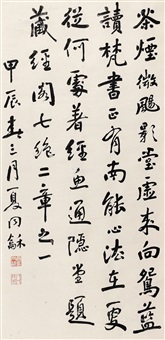 茶煙微颺影堂虛來向鴛藍
讀梵書正有南能心法在更
從何處著經魚通隱堂題
藏經閣七絕二章之一
甲辰春三月夏同龢